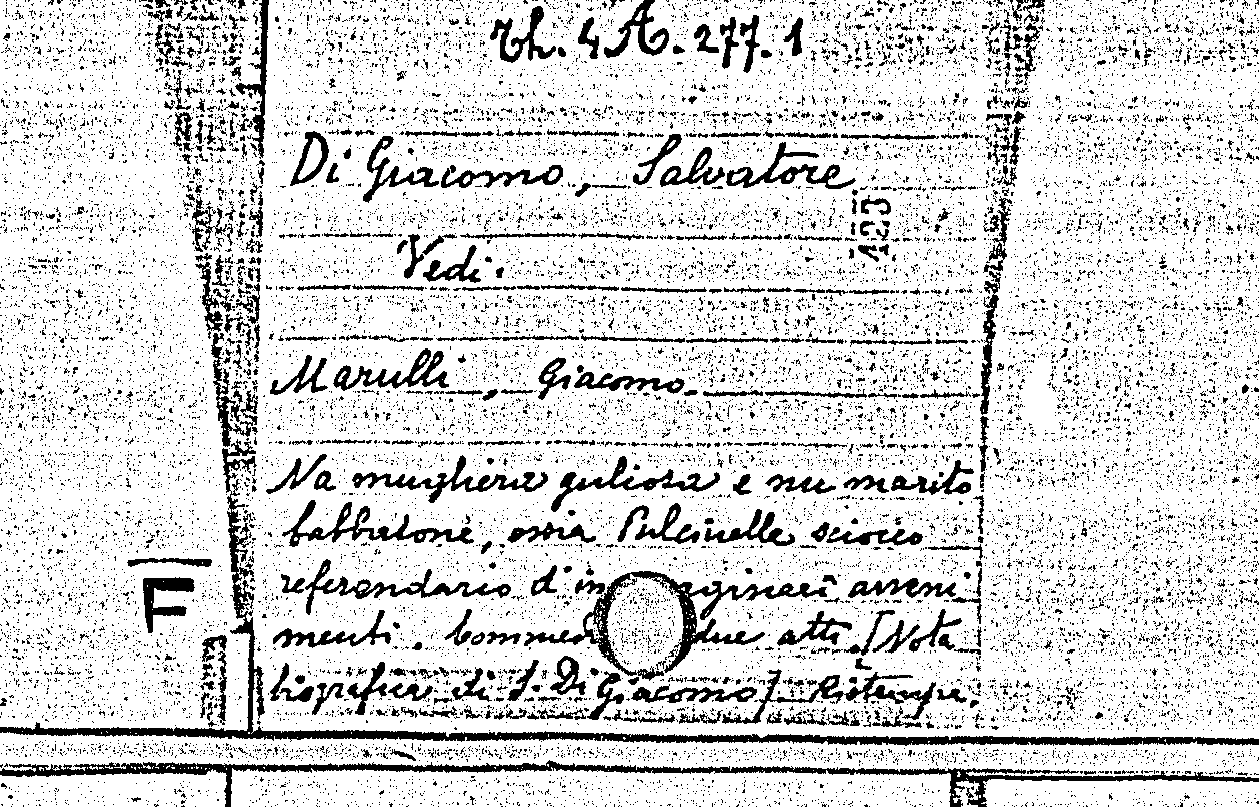 Th. 4 A. 277. 1
Di Giacomo, Salvatore
123
Vedi.
Marulli, Giacomo.
Na mugliera guliosa e nu marito
babbatone, ossia Pulcinella sciocco
referendario d'
menti. due atti. [Nota
biografica di S. Di Giacomo]. Ristampa.
F